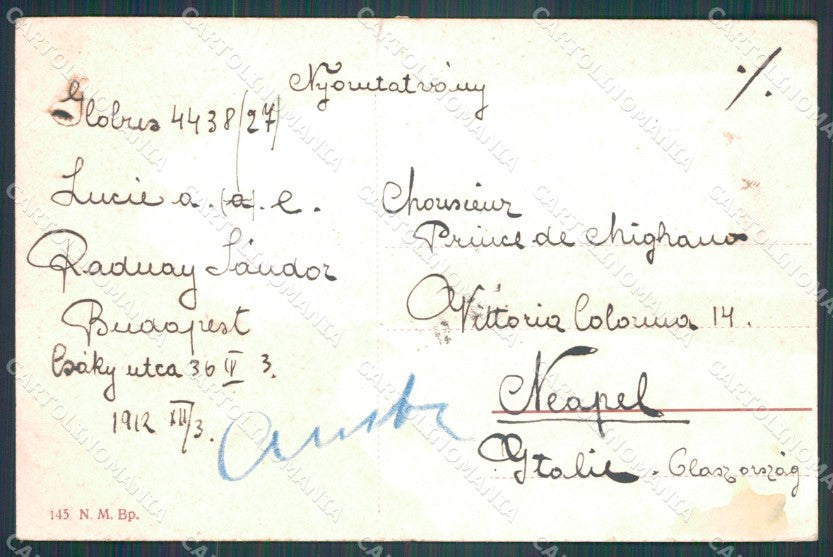 Nyomtatvány
·/.
Globus 4438/27
Lucie a. (a). e.
Radnay Sándor
Budapest
Csáky utca 36 II 3.
1912 XII/3.
Monsieur
Prince de Mighano
Vittoria Colonna 14.
Neapel
Italie. Olaszország
145 N. M. Bp.
CARTOLINOMANIA